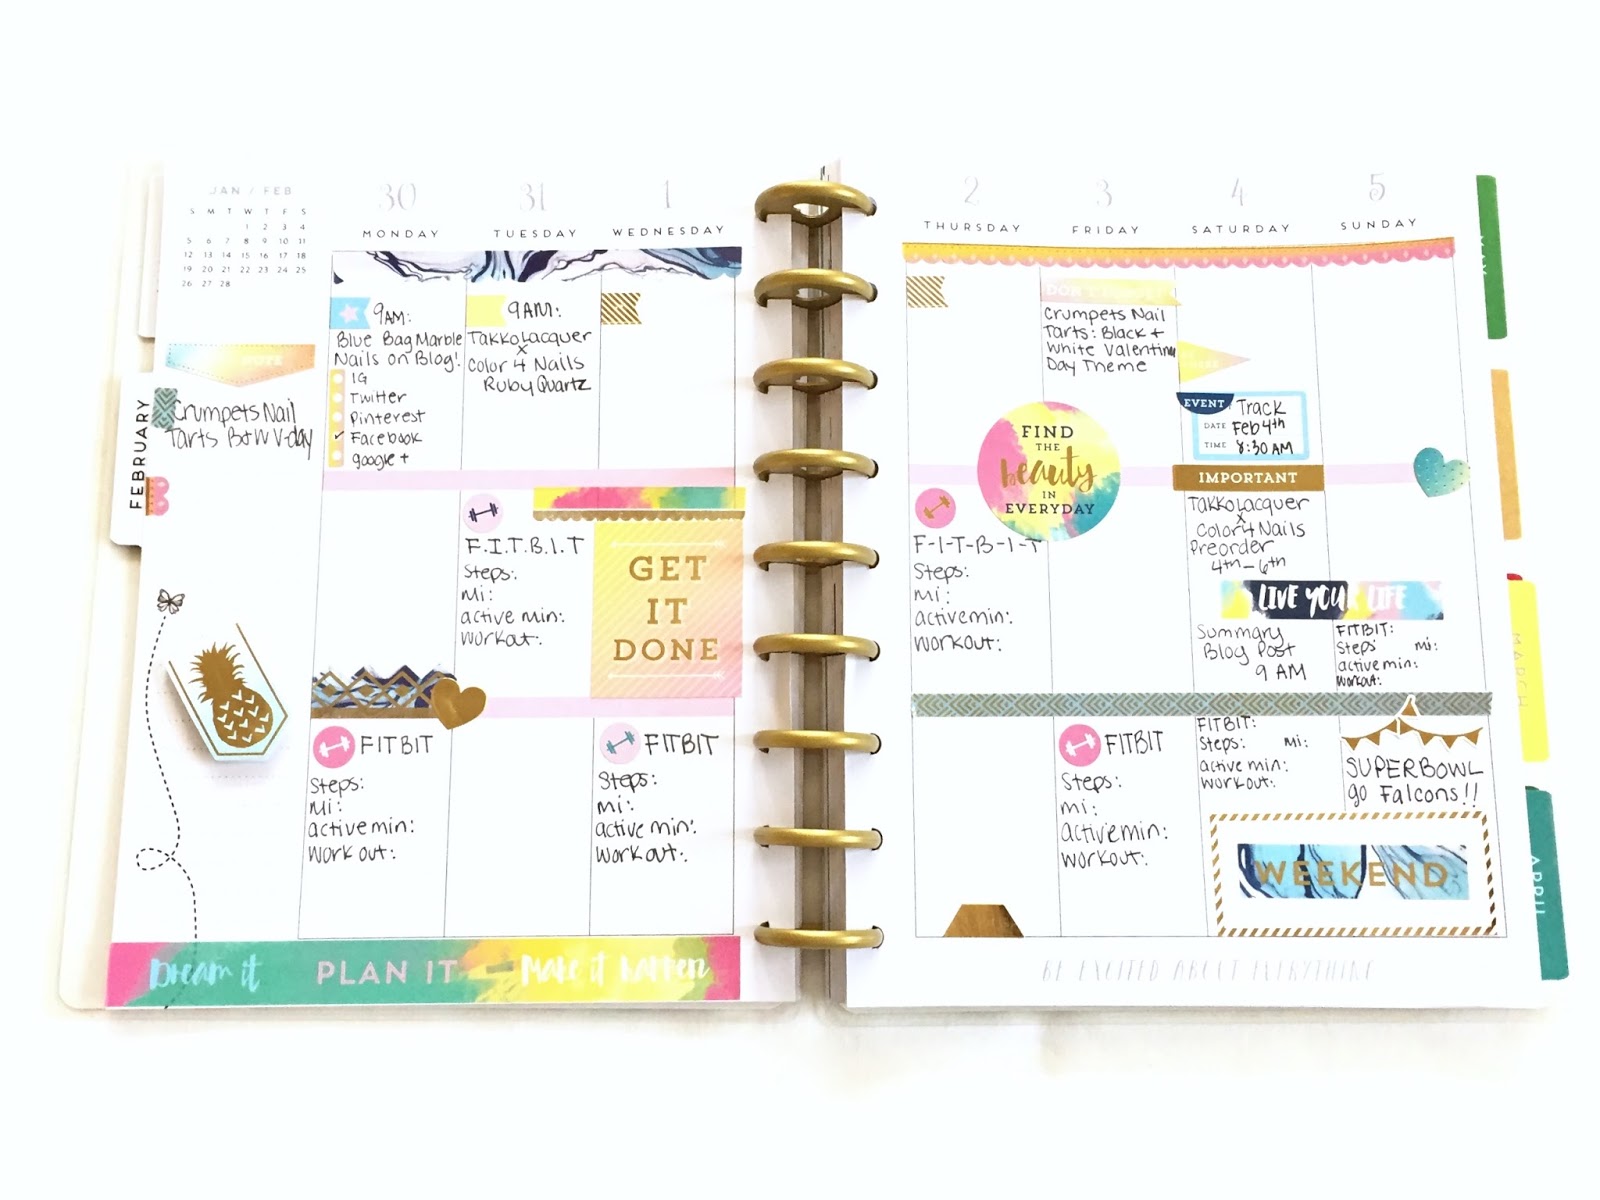 JAN / FEB
S M T W T F S
1 2 3 4
5 6 7 8 9 10 11
12 13 14 15 16 17 18
19 20 21 22 23 24 25
26 27 28
FEBRUARY
Crumpets Nail
Tarts B+W V-day
30
MONDAY
9AM:
Blue Bag Marble
Nails on Blog!
IG
Twitter
Pinterest
✓ Facebook
google +
FITBIT
Steps:
Mi:
active min:
workout:
31
TUESDAY
9AM:
Takko Lacquer
x
Color 4 Nails
Ruby Quartz
F.I.T.B.I.T
Steps:
Mi:
active min:
workout:
1
WEDNESDAY
GET
IT
DONE
FITBIT
Steps:
Mi:
active min:
workout:
Dream it PLAN IT Make it happen
2
THURSDAY
F-I-T-B-I-T
Steps:
Mi:
active min:
workout:
3
FRIDAY
DON'T
Crumpets Nail
Tarts: Black +
White Valentine
Day Theme
FIND
THE
beauty
IN
EVERYDAY
FITBIT
Steps:
mi:
active min:
workout:
4
SATURDAY
EVENT Track
DATE Feb 4th
TIME 8:30 AM
IMPORTANT
Takko Lacquer
x
Color 4 Nails
Preorder
4th-6th
LIVE YOUR LIFE
Summary
Blog Post
9 AM
FITBIT:
Steps: Mi:
active min:
workout:
5
SUNDAY
FITBIT:
Steps Mi:
active min:
workout:
SUPERBOWL
go Falcons!!
WEEKEND
BE EXCITED ABOUT EVERYTHING
MAY
MARCH
APRIL